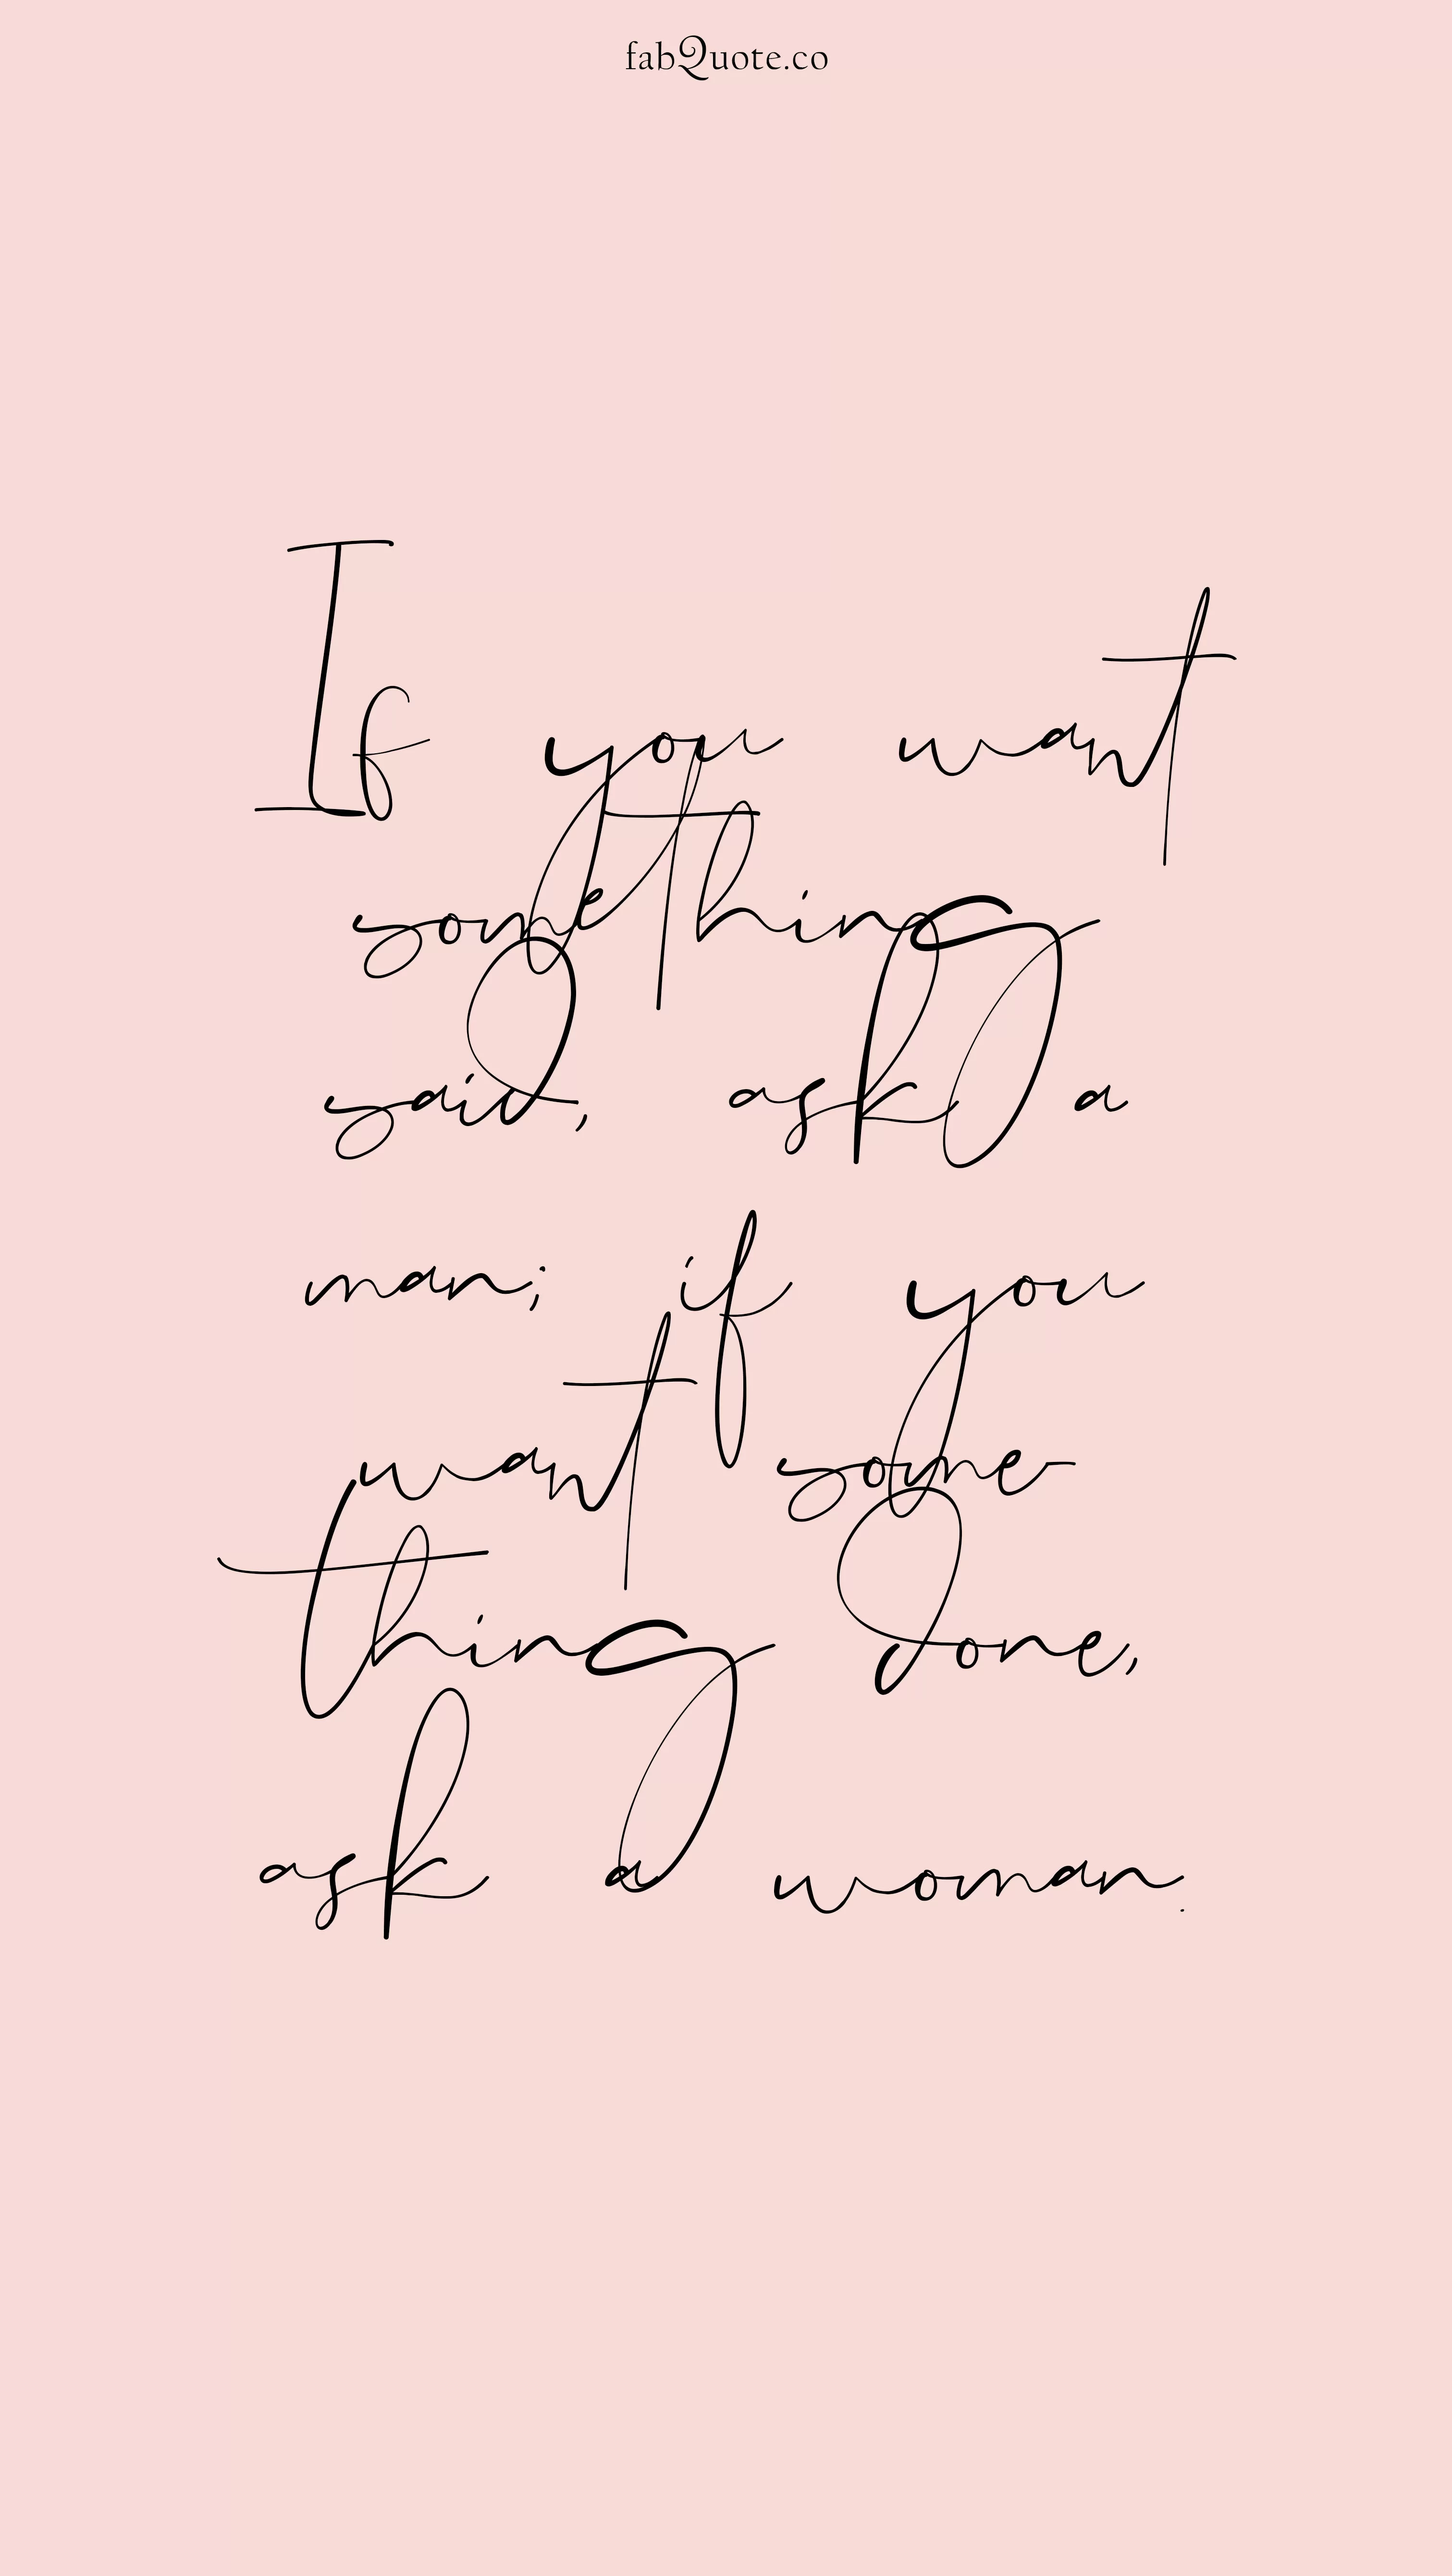 fabQuote.co
If you want
something
said, ask a
man; if you
want some
thing done,
ask a woman.